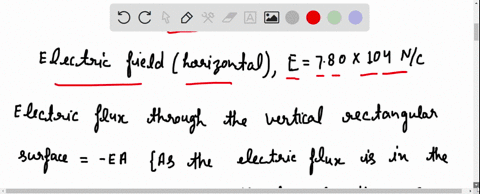 Electric field (horizontal), E = 7.80 × 104 N/C
Electric flux through the vertical rectangular
surface = -EA {As the electric flux is in the